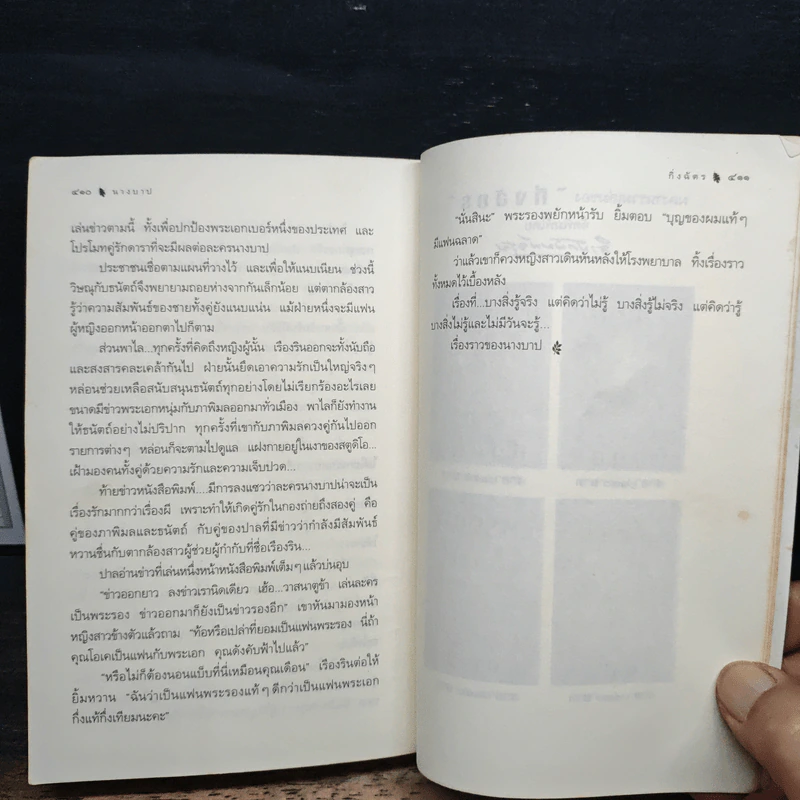 ๔๑๐ นางบาป
เล่นข่าวตามนี้ ทั้งเพื่อปกป้องพระเอกเบอร์หนึ่งของประเทศ และ
โปรโมทคู่รักดาราที่จะมีผลต่อละครนางบาป
ประชาชนเชื่อตามแผนที่วางไว้ และเพื่อให้แนบเนียน ช่วงนี้
วิษณุกับธนัตถ์จึงพยายามถอยห่างจากกันเล็กน้อย แต่ตากล้องสาว
รู้ว่าความสัมพันธ์ของชายทั้งคู่ยังแนบแน่น แม้ฝ่ายหนึ่งจะมีแฟน
ผู้หญิงออกหน้าออกตาไปก็ตาม
ส่วนพาไล...ทุกครั้งที่คิดถึงหญิงผู้นั้น เรืองรินออกจะทั้งนับถือ
และสงสารคละเคล้ากันไป ฝ่ายนั้นยึดเอาความรักเป็นใหญ่จริงๆ
หล่อนช่วยเหลือสนับสนุนธนัตถ์ทุกอย่างโดยไม่เรียกร้องอะไรเลย
ขณะมีข่าวพระเอกหนุ่มกับภาพิมลออกมาทั่วเมือง พาไลก็ยังทำงาน
ให้ธนัตถ์อย่างไม่ปริปาก ทุกครั้งที่เขากับภาพิมลควงคู่กันไปออก
รายการต่างๆ หล่อนก็จะตามไปดูแล แฝงกายอยู่ในเงาของสตูดิโอ...
เฝ้ามองคนทั้งคู่ด้วยความรักและความเจ็บปวด...
ท้ายข่าวหนังสือพิมพ์....มีการลงแซวว่าละครนางบาปน่าจะเป็น
เรื่องรักมากกว่าเรื่องผี เพราะทำให้เกิดคู่รักในกองถ่ายถึงสองคู่ คือ
คู่ของภาพิมลและธนัตถ์ กับคู่ของปาลที่มีข่าวว่ากำลังมีสัมพันธ์
หวานชื่นกับตากล้องสาวผู้ช่วยผู้กำกับที่ชื่อเรืองริน...
ปาลอ่านข่าวที่เล่นหนึ่งหน้าหนังสือพิมพ์เต็มๆ แล้วบ่นอุบ
"ข่าวออกยาว ลงข่าวเรานิดเดียว เฮ้อ...วาสนาตูข้า เล่นละคร
เป็นพระรอง ข่าวออกมาก็ยังเป็นข่าวรองอีก" เขาหันมามองหน้า
หญิงสาวข้างตัวแล้วถาม "ท้อหรือเปล่าที่ยอมเป็นแฟนพระรอง นี่ถ้า
คุณโอเคเป็นแฟนกับพระเอก คุณดังคับฟ้าไปแล้ว"
"หรือไม่ก็ต้องนอนแบ็บที่นี่เหมือนคุณเดือน" เรืองรินต่อให้
ยิ้มหวาน "ฉันว่าเป็นแฟนพระรองแท้ๆ ดีกว่าเป็นแฟนพระเอก
กึ่งแท้กึ่งเทียมนะคะ"
กิ่งฉัตร ๔๑๑
"นั่นสินะ" พระรองพยักหน้ารับ ยิ้มตอบ "บุญของผมแท้ๆ
มีแฟนฉลาด"
ว่าแล้วเขาก็ควงหญิงสาวเดินหันหลังให้โรงพยาบาล ทิ้งเรื่องราว
ทั้งหมดไว้เบื้องหลัง
เรื่องที่...บางสิ่งรู้จริง แต่คิดว่าไม่รู้ บางสิ่งรู้ไม่จริง แต่คิดว่ารู้
บางสิ่งไม่รู้และไม่มีวันจะรู้...
เรื่องราวของนางบาป